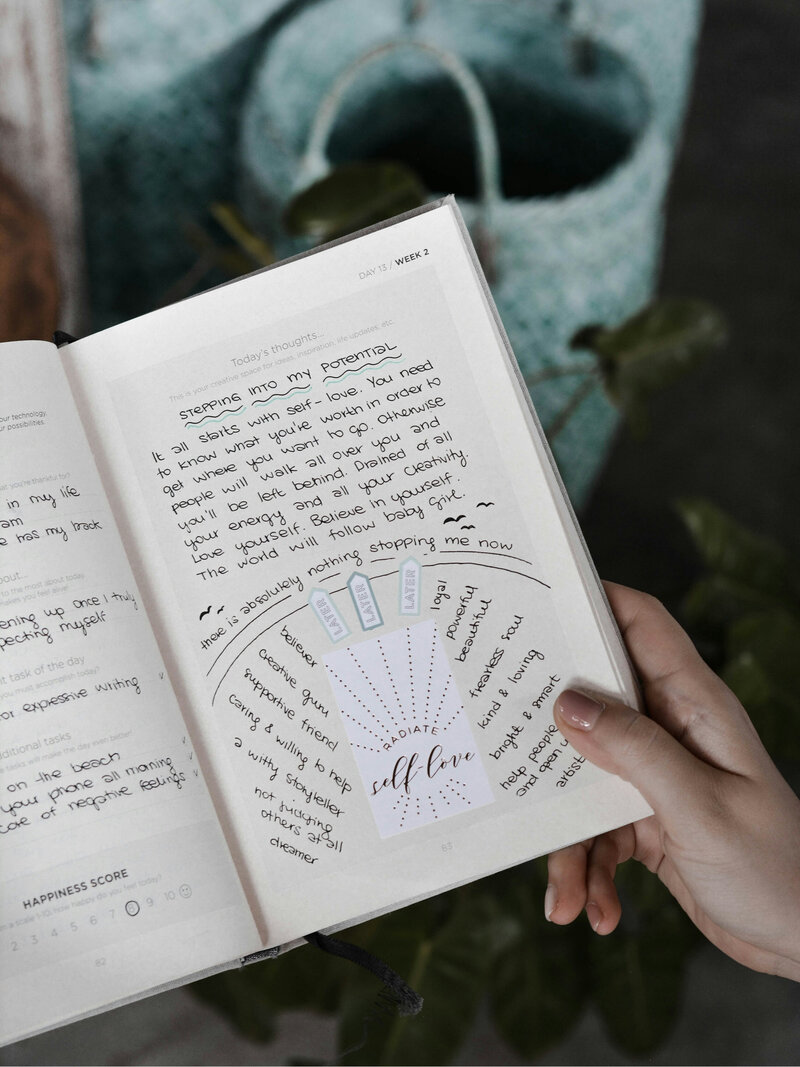 our technology,
ur possibilities.
hat you're thankful for?
in my life
am
e has my back
bout...
to the most about today
makes you feel alive
ening up once I truly
pecting myself
nt task of the day
you must accomplish today?
or expressive writing
ditional tasks
tasks will make the day even better!
on the beach
your phone all morning
care of negative feelings
HAPPINESS SCORE
n a scale 1-10, how happy do you feel today?
2 3 4 5 6 7 8 9 10
82
DAY 13 / WEEK 2
Today's thoughts...
This is your creative space for ideas, inspiration, life updates, etc.
STEPPING INTO MY POTENTIAL
It all starts with self-love. You need
to know what you're worth in order to
get where you want to go. Otherwise
people will walk all over you and
you'll be left behind. Drained of all
your energy and all your creativity.
Love yourself. Believe in yourself.
The world will follow baby girl.
there is absolutely nothing stopping me now
LATER
LATER
LATER
believer
creative guru
supportive friend
caring & willing to help
a witty storyteller
not judging
others at all
dreamer
RADIATE
self-love
loyal
powerful
beautiful
fearless soul
kind & loving
bright & smart
help people
and open
artist
83